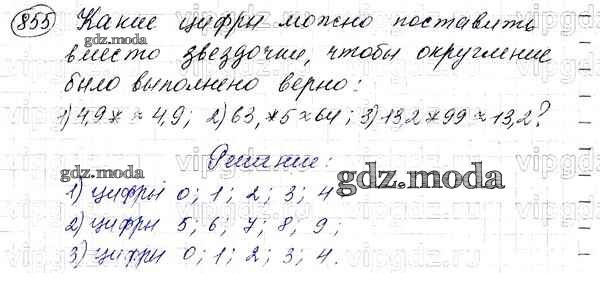 855 Какие цифры можно поставить
вместо звездочки, чтобы округление
было выполнено верно:
1) 4,9* ≈ 4,9; 2) 63,*5 ≈ 64; 3) 13,2*99 ≈ 13,2?
Решение:
1) цифры 0; 1; 2; 3; 4
2) цифры 5; 6; 7; 8; 9;
3) цифры 0; 1; 2; 3; 4.
gdz.moda
gdz.moda
gdz.moda
gdz.moda
gdz.moda